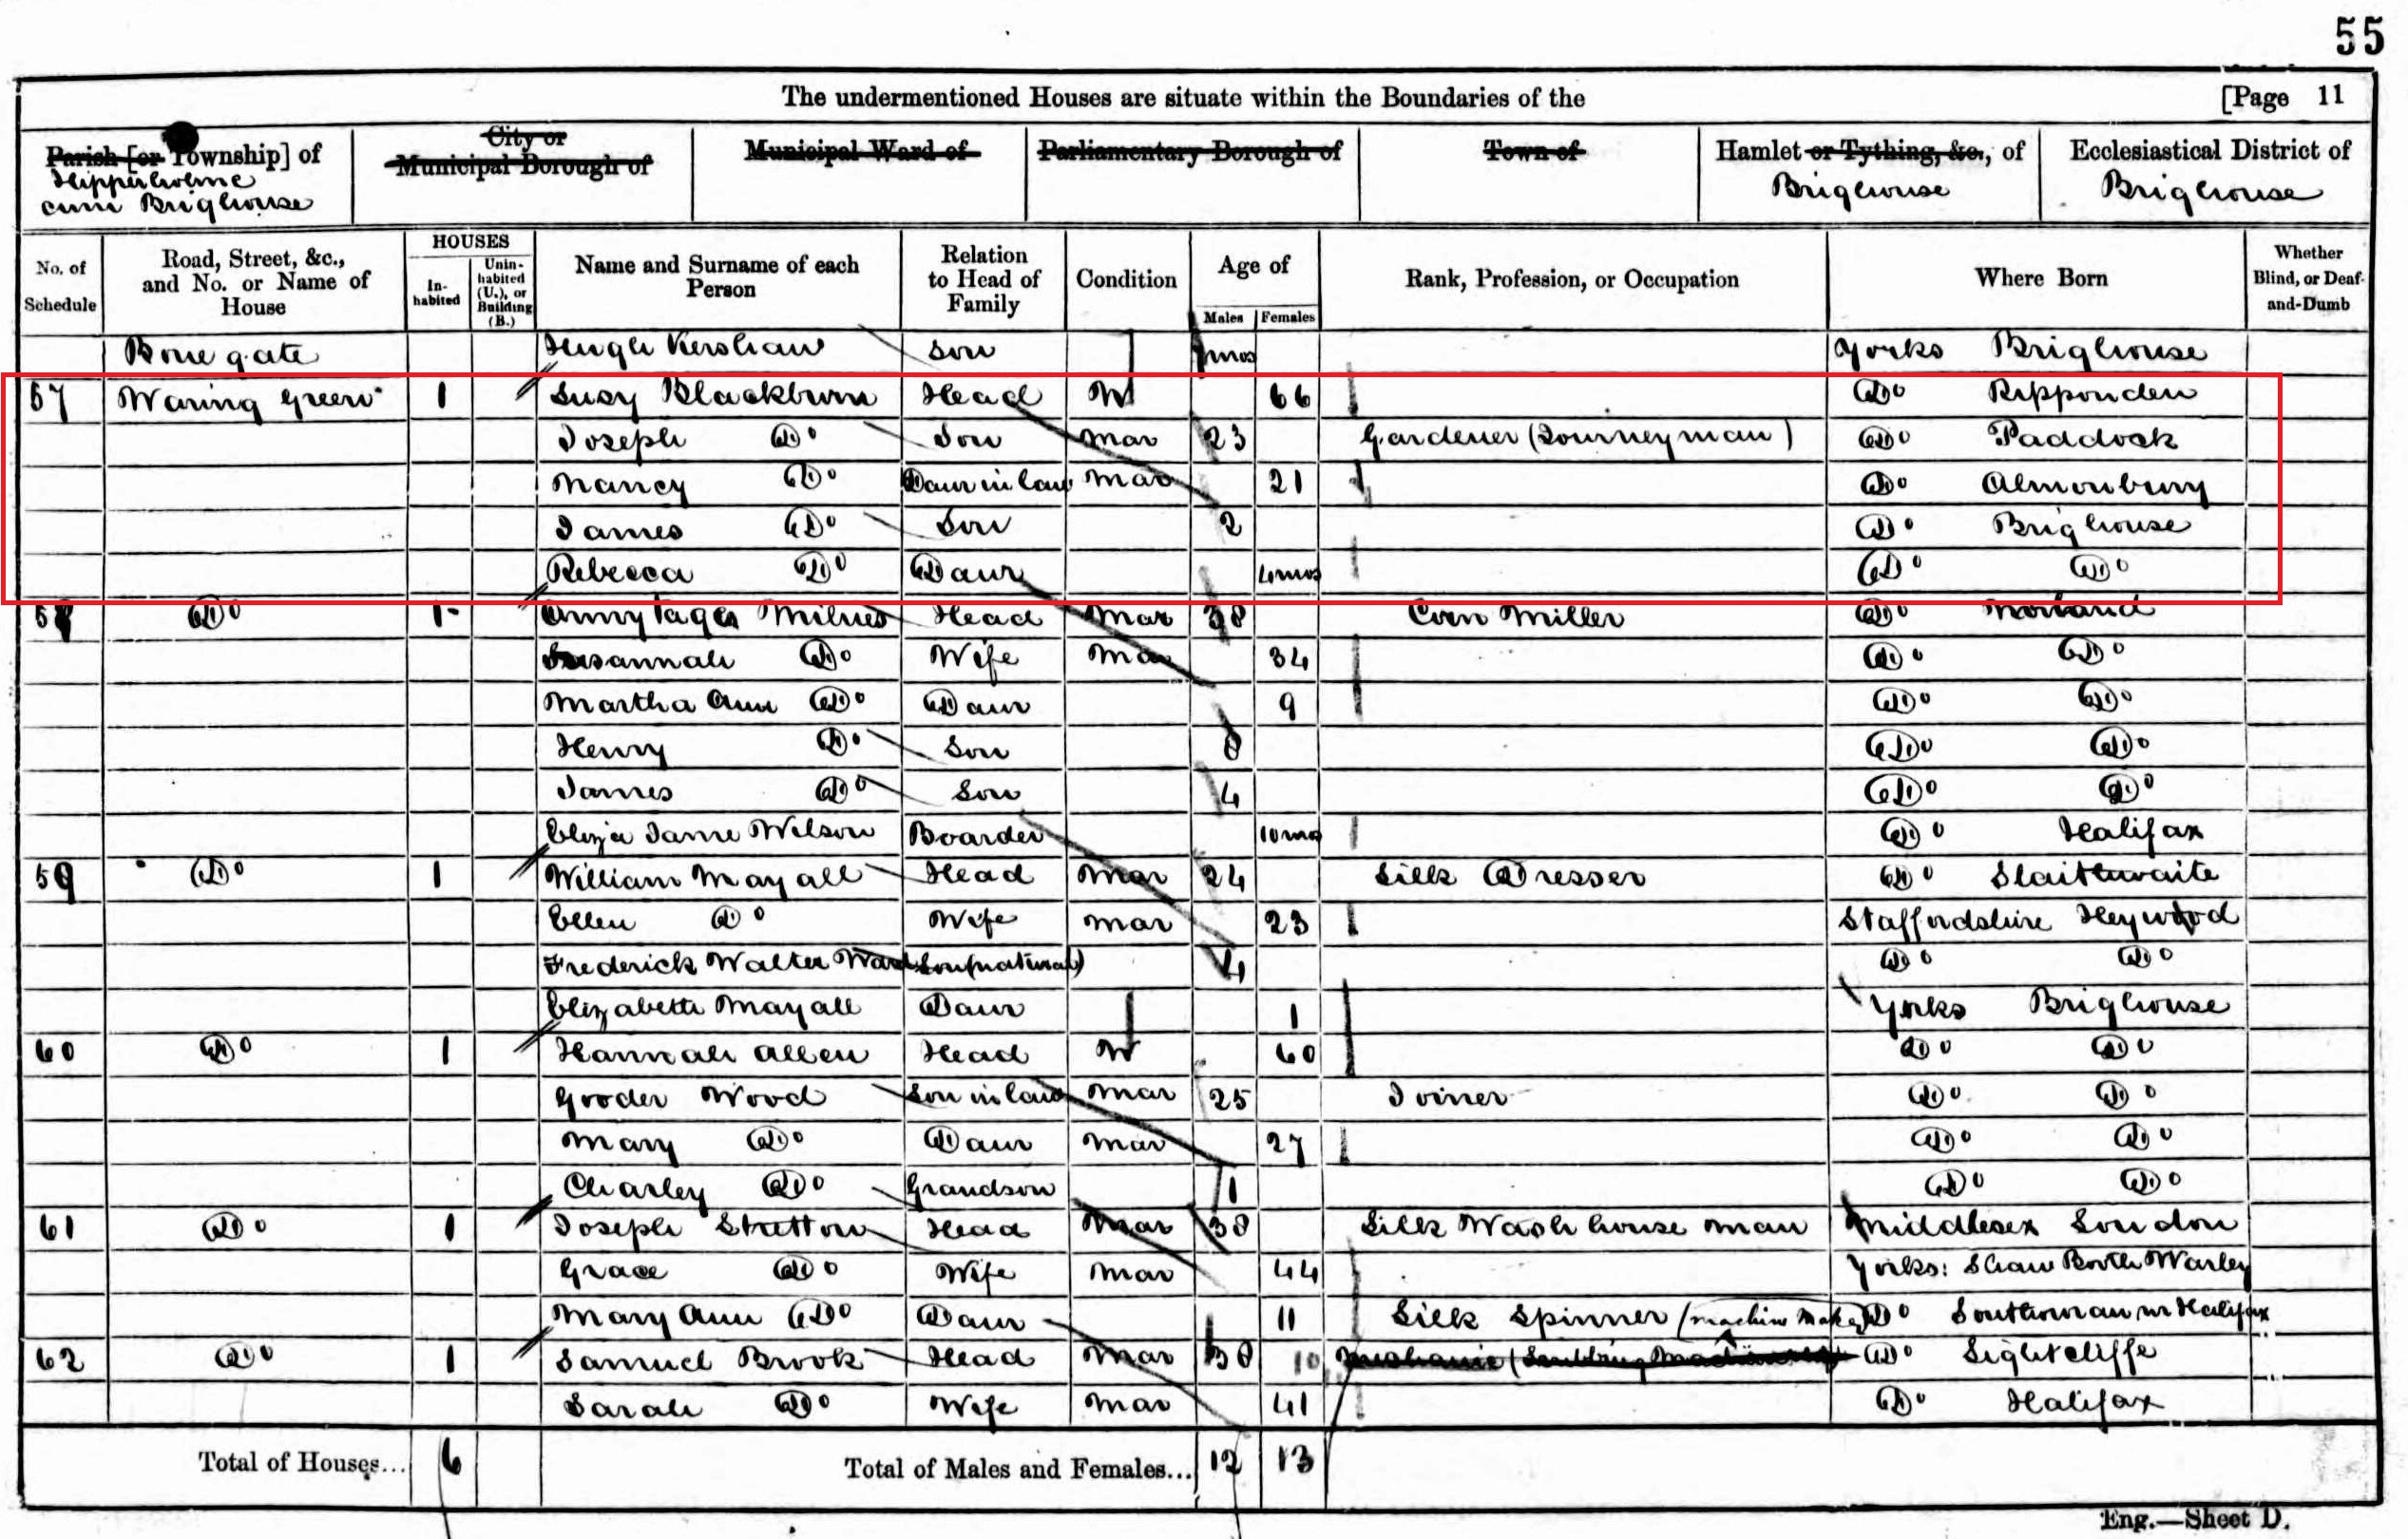 55
The undermentioned Houses are situate within the Boundaries of the [Page 11
Parish [or Township] of City or Municipal Borough of Municipal Ward of Parliamentary Borough of Town of Hamlet or Tything, &c., of Ecclesiastical District of
Hipperholme cum Brighouse Brighouse Brighouse
No. of Schedule Road, Street, &c., and No. or Name of House HOUSES In-habited Unin-habited (U.), or Building (B.) Name and Surname of each Person Relation to Head of Family Condition Age of Males Females Rank, Profession, or Occupation Where Born Whether Blind, or Deaf-and-Dumb
Bonegate Hugh Kershaw Son 7mos Yorks Brighouse
57 Waring Green 1 Susy Blackburn Head W 66 Do Ripponden
Joseph Do Son Mar 23 Gardener (Journeyman) Do Paddock
Nancy Do Daur in law Mar 21 Do Almonbury
James Do Son 2 Do Brighouse
Rebecca Do Daur 4mos Do Do
58 Do 1 Armytage Milnes Head Mar 38 Corn Miller Do Norland
Susannah Do Wife Mar 34 Do Do
Martha Ann Do Daur 9 Do Do
Henry Do Son 8 Do Do
James Do Son 4 Do Do
Eliza Jane Wilson Boarder 10mos Do Halifax
59 Do 1 William Mayall Head Mar 24 Silk Dresser Do Slaithwaite
Ellen Do Wife Mar 23 Staffordshire Heywood
Frederick Walter Ward Son (natural) 4 Do Do
Elizabeth Mayall Daur 1 Yorks Brighouse
60 Do 1 Hannah Allen Head W 60 Do Do
Gooder Wood Son in law Mar 25 Joiner Do Do
Mary Do Daur Mar 27 Do Do
Charley Do Grandson 1 Do Do
61 Do 1 Joseph Stretton Head Mar 38 Silk Wash house man Middlesex London
Grace Do Wife Mar 44 Yorks: Shaw Booth Warley
Mary Ann Do Daur 11 Silk Spinner (machine Maker) Do Southowram nr Halifax
62 Do 1 Samuel Brook Head Mar 38 10 Mechanic Do Lightcliffe
Sarah Do Wife Mar 41 Do Halifax
Total of Houses... 6 Total of Males and Females... 12 13
Eng.—Sheet D.